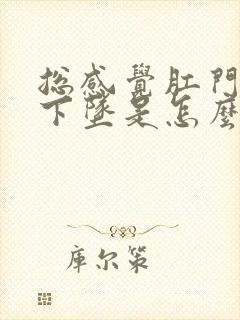 总感覺肛門
下墜是怎麼
庫尔策